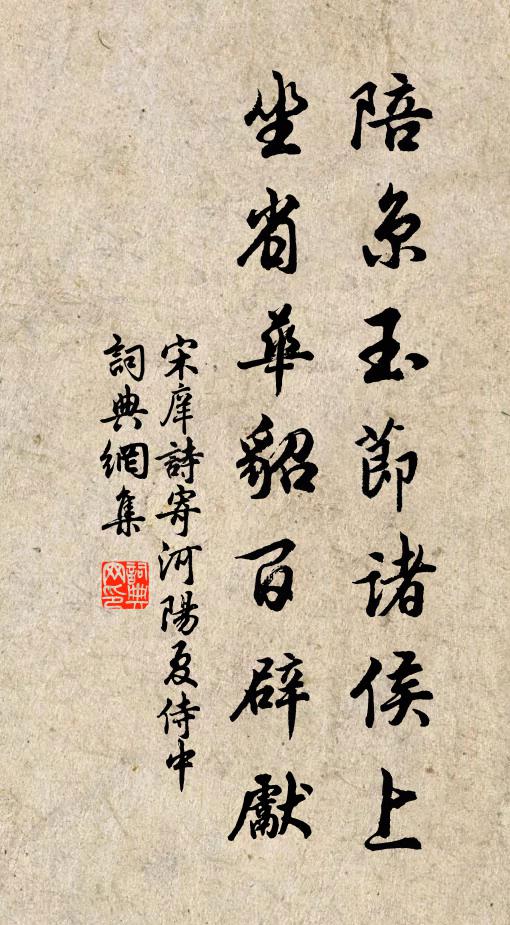 陪京玉節諸侯上
坐省華貂百辟獻
宋庠詩寄河陽夏侍中
詞典網集
詞典网印